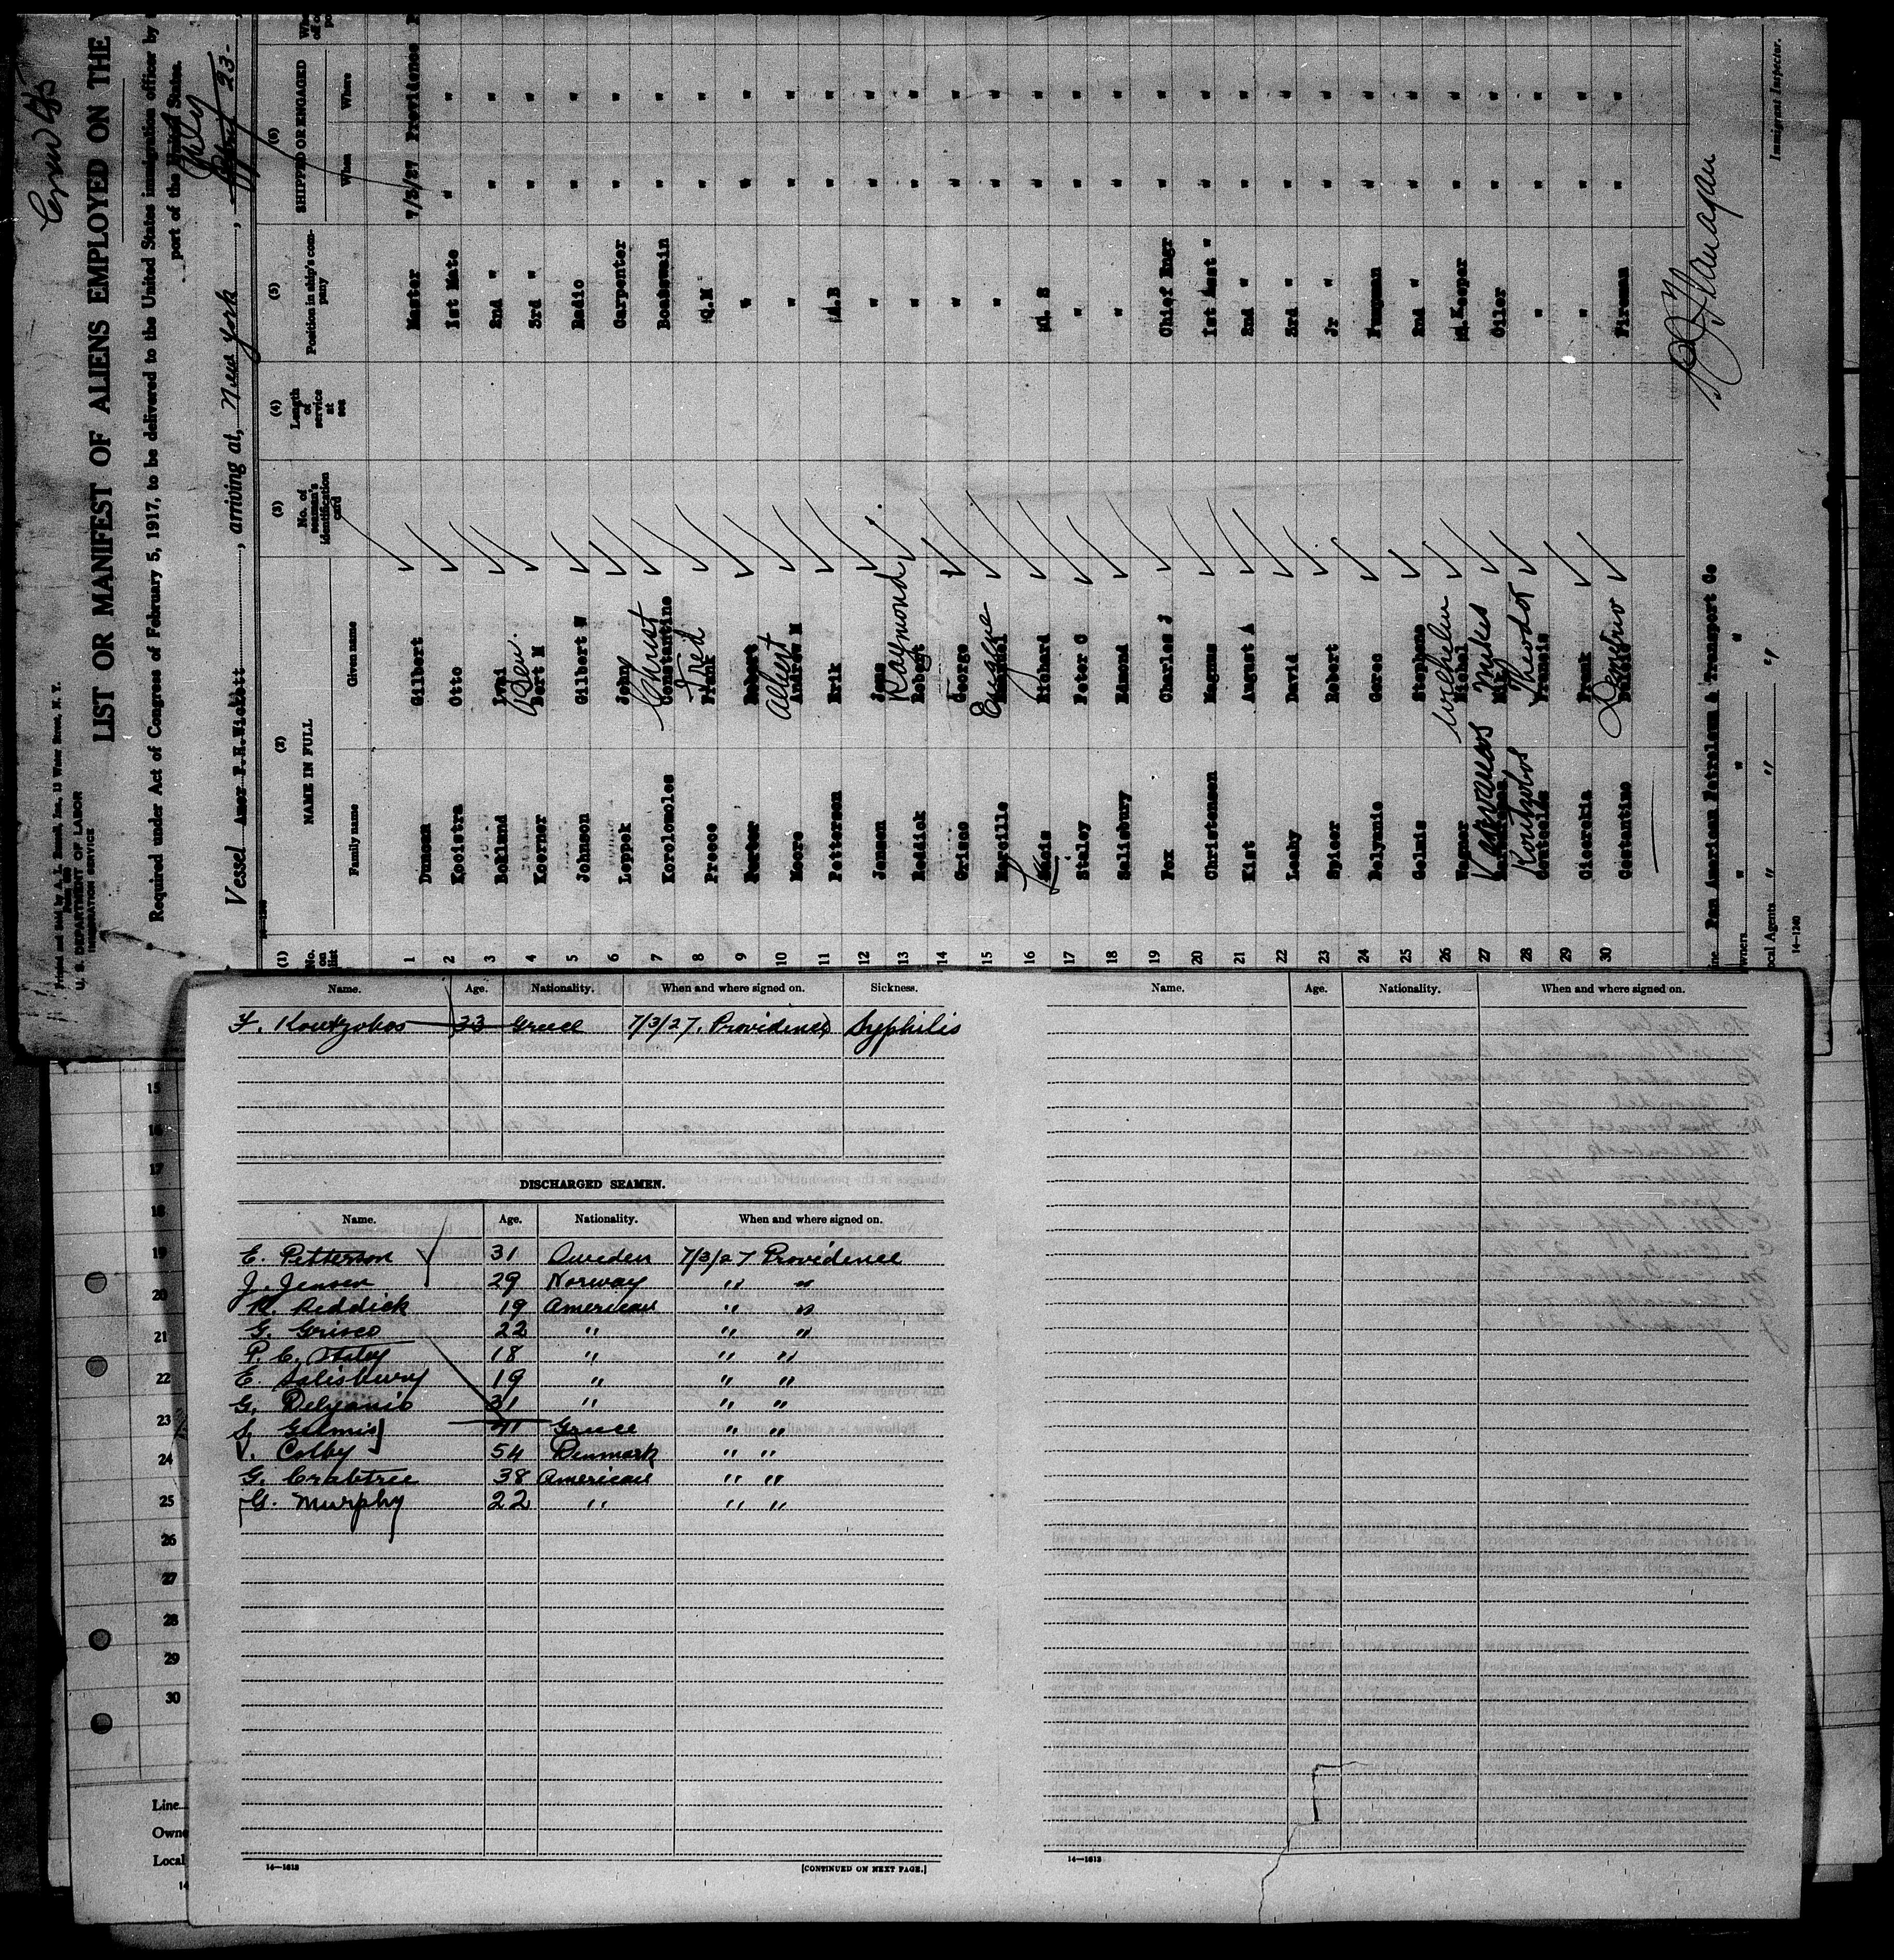 Crew 45
Printed and Sold by A. L. Russell, Inc., 13 Water Street, N. Y.
U. S. DEPARTMENT OF LABOR
IMMIGRATION SERVICE
LIST OR MANIFEST OF ALIENS EMPLOYED ON THE
Required under Act of Congress of February 5, 1917, to be delivered to the United States immigration officer by
port of the United States.
Vessel , arriving at, New York , July 23-
(1) (2) (3) (4) (5) (6)
No. on list NAME IN FULL No. of seaman's identification card Length of service at sea Position in ship's company SHIPPED OR ENGAGED
Family name Given name When Where
1 Duncan Gilbert Master 7/3/27 Providence
2 Kooistra Otto 1st Mate " "
3 2nd " " "
4 Koerner Ben. Bert M 3rd " " "
5 Johnson Gilbert W Radio " "
6 Leppek John Carpenter " "
7 Korolomoles Christ Constantine Boatswain " "
8 Preece Fred Frank Q.M " "
9 Porter Robert " " "
10 Moore Albert Andrew M " " "
11 Pettersen Erik A.B " "
12 Jensen Jens " " "
13 Reddick Raymond Robert " " "
14 Grisco George " " "
15 Eugene " " "
16 Richard O. S " "
17 Staley Peter C " " "
18 Salisbury Edmond " " "
19 Fox Charles J Chief Engr " "
20 Christensen Magnus 1st Asst " " "
21 Kist August A 2nd " " "
22 Leahy David 3rd " " "
23 Spicer Robert Jr " " "
24 Delyanis Pumpman " "
25 Stephens 2nd " " "
26 Wagner Wilhelm Michel " "
27 Mike Oiler " "
28 Koutzobos Theodor Francis " " "
29 Frank " " "
30 Costantine Demetrio Fireman " "
Pan American Petroleum & Transport Co
Owners " " "
Local Agents " " "
14—1240
Immigrant Inspector.
Name. Age. Nationality. When and where signed on. Sickness.
33 Greece 7/3/27, Providence Syphilis
DISCHARGED SEAMEN.
Name. Age. Nationality. When and where signed on.
E. Petterson 31 Sweden 7/3/27 Providence
J. Jensen 29 Norway " "
R. Reddick 19 American " "
G. Grisco 22 " " "
P. C. Staley 18 " " "
E. Salisbury 19 " " "
G. Delyanis 31 " " "
S. Gelmis 41 Greece " "
Colby 54 Denmark " "
G. Crabtree 38 American " "
G. Murphy 22 " " "
14—1613
[CONTINUED ON NEXT PAGE.]
Name. Age. Nationality. When and where signed on.
14—1613
15
16
17
18
19
20
21
22
23
24
25
26
27
28
29
30
Line
Owne
Local
14